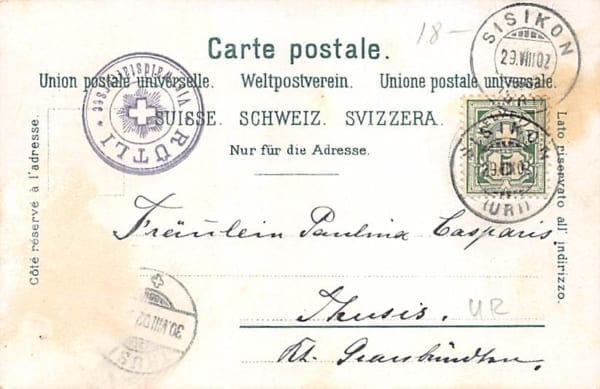 18-
Carte postale.
Union postale universelle. Weltpostverein. Unione postale universale.
SUISSE. SCHWEIZ. SVIZZERA.
Nur für die Adresse.
Côté réservé à l'adresse.
Lato riservato all' indirizzo.
RÜTLI
SISIKON
29.VIII.02
SISIKON
29.VIII.02
(URI)
Fräulein Paulina Casparis
Thusis.
UR
Kt. Graubündten.
30.VIII.02
THUSIS